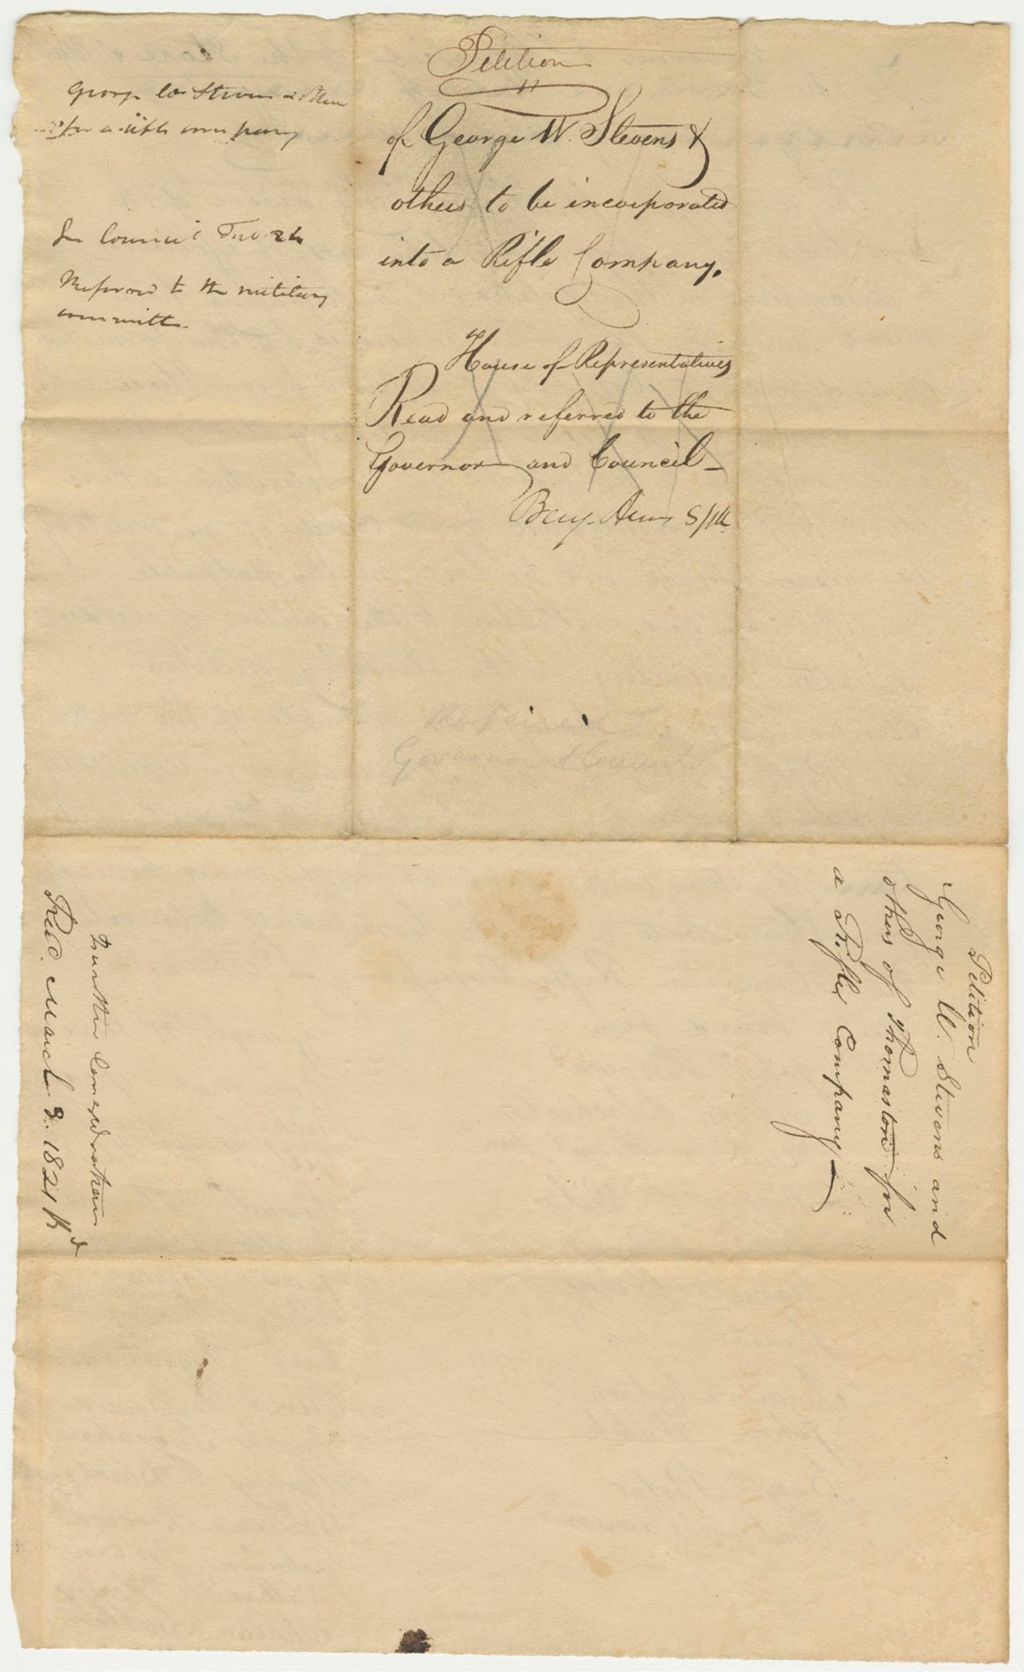 George W Stevens & others
for a rifle company
In Council Feb. 24
Referred to the military
committee.
Petition
of George W. Stevens &
others to be incorporated
into a Rifle Company.
House of Representatives
Read and referred to the
Governor and Council
Benj. Ames Spkr
Governor & Council
Petition
George W. Stevens and
others of Thomaston for
a Rifle Company
Recd. March 1821